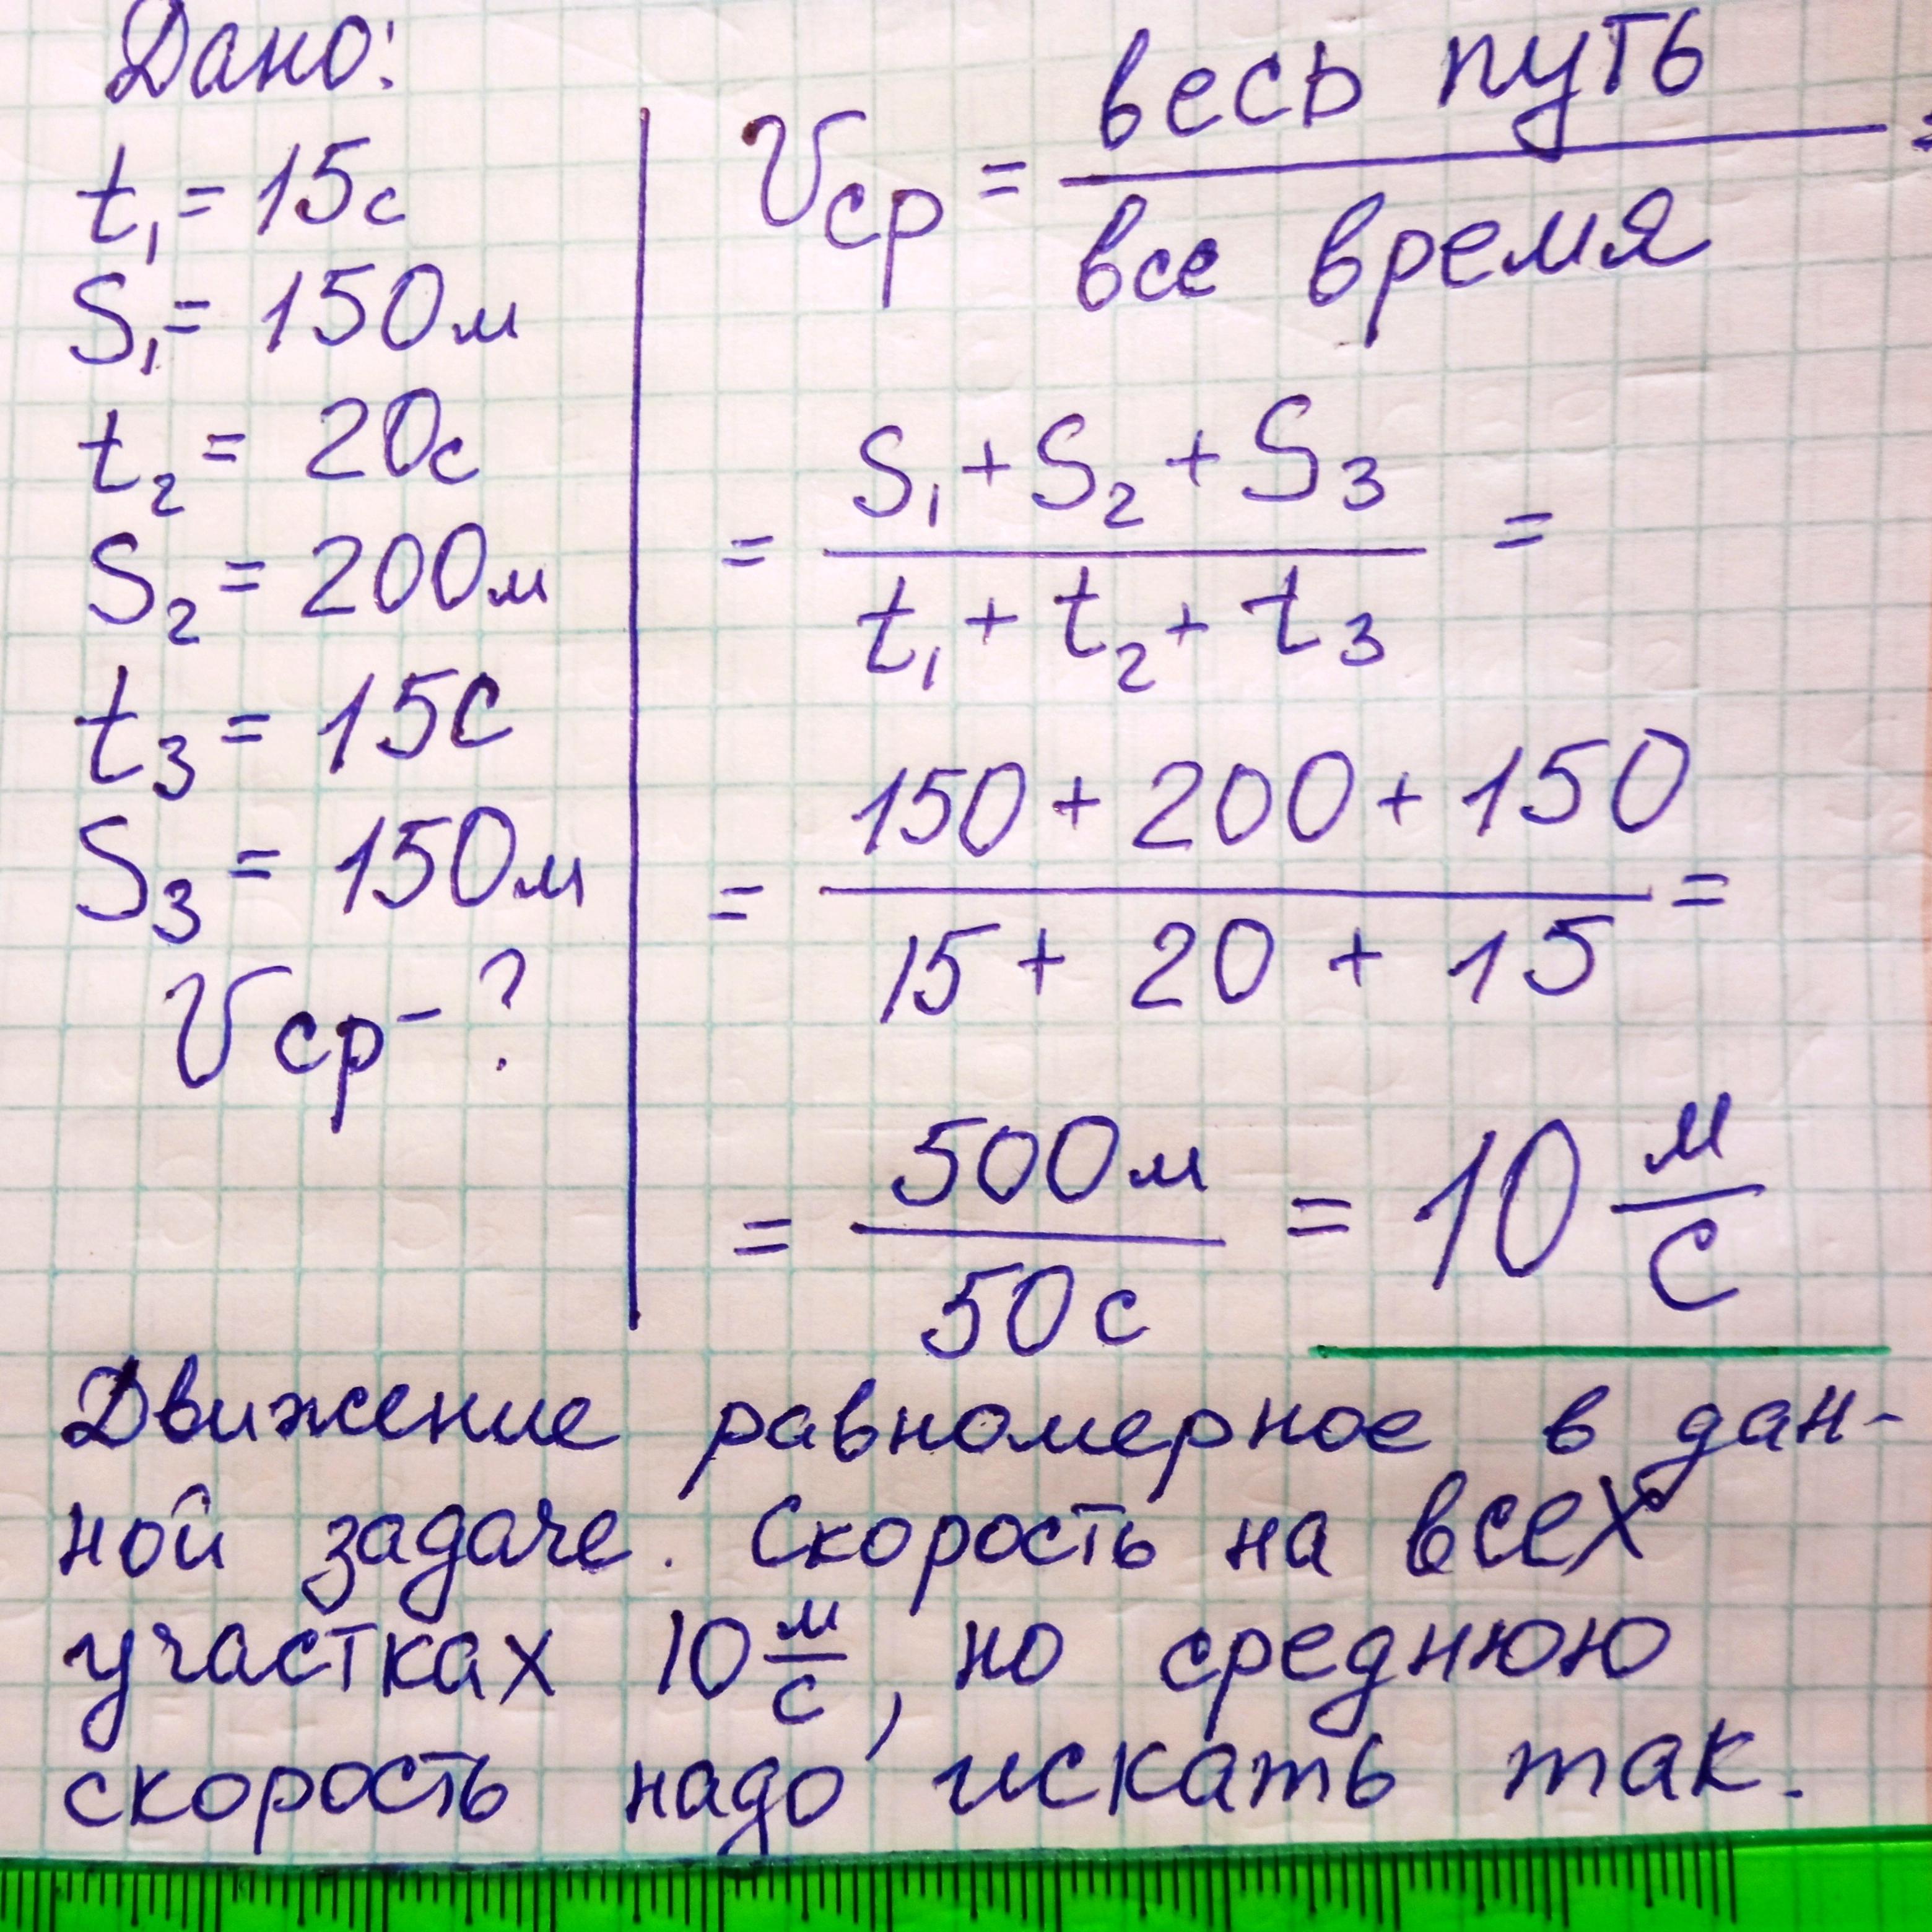 Дано:
t₁ = 15с
S₁ = 150м
t₂ = 20с
S₂ = 200м
t₃ = 15с
S₃ = 150м
Vср - ?
Vср = весь путь / все время =
= S₁ + S₂ + S₃ / t₁ + t₂ + t₃ =
= 150 + 200 + 150 / 15 + 20 + 15 =
= 500м / 50с = 10 м/с
Движение равномерное в дан-
ной задаче. Скорость на всех
участках 10 м/с, но среднюю
скорость надо искать так.